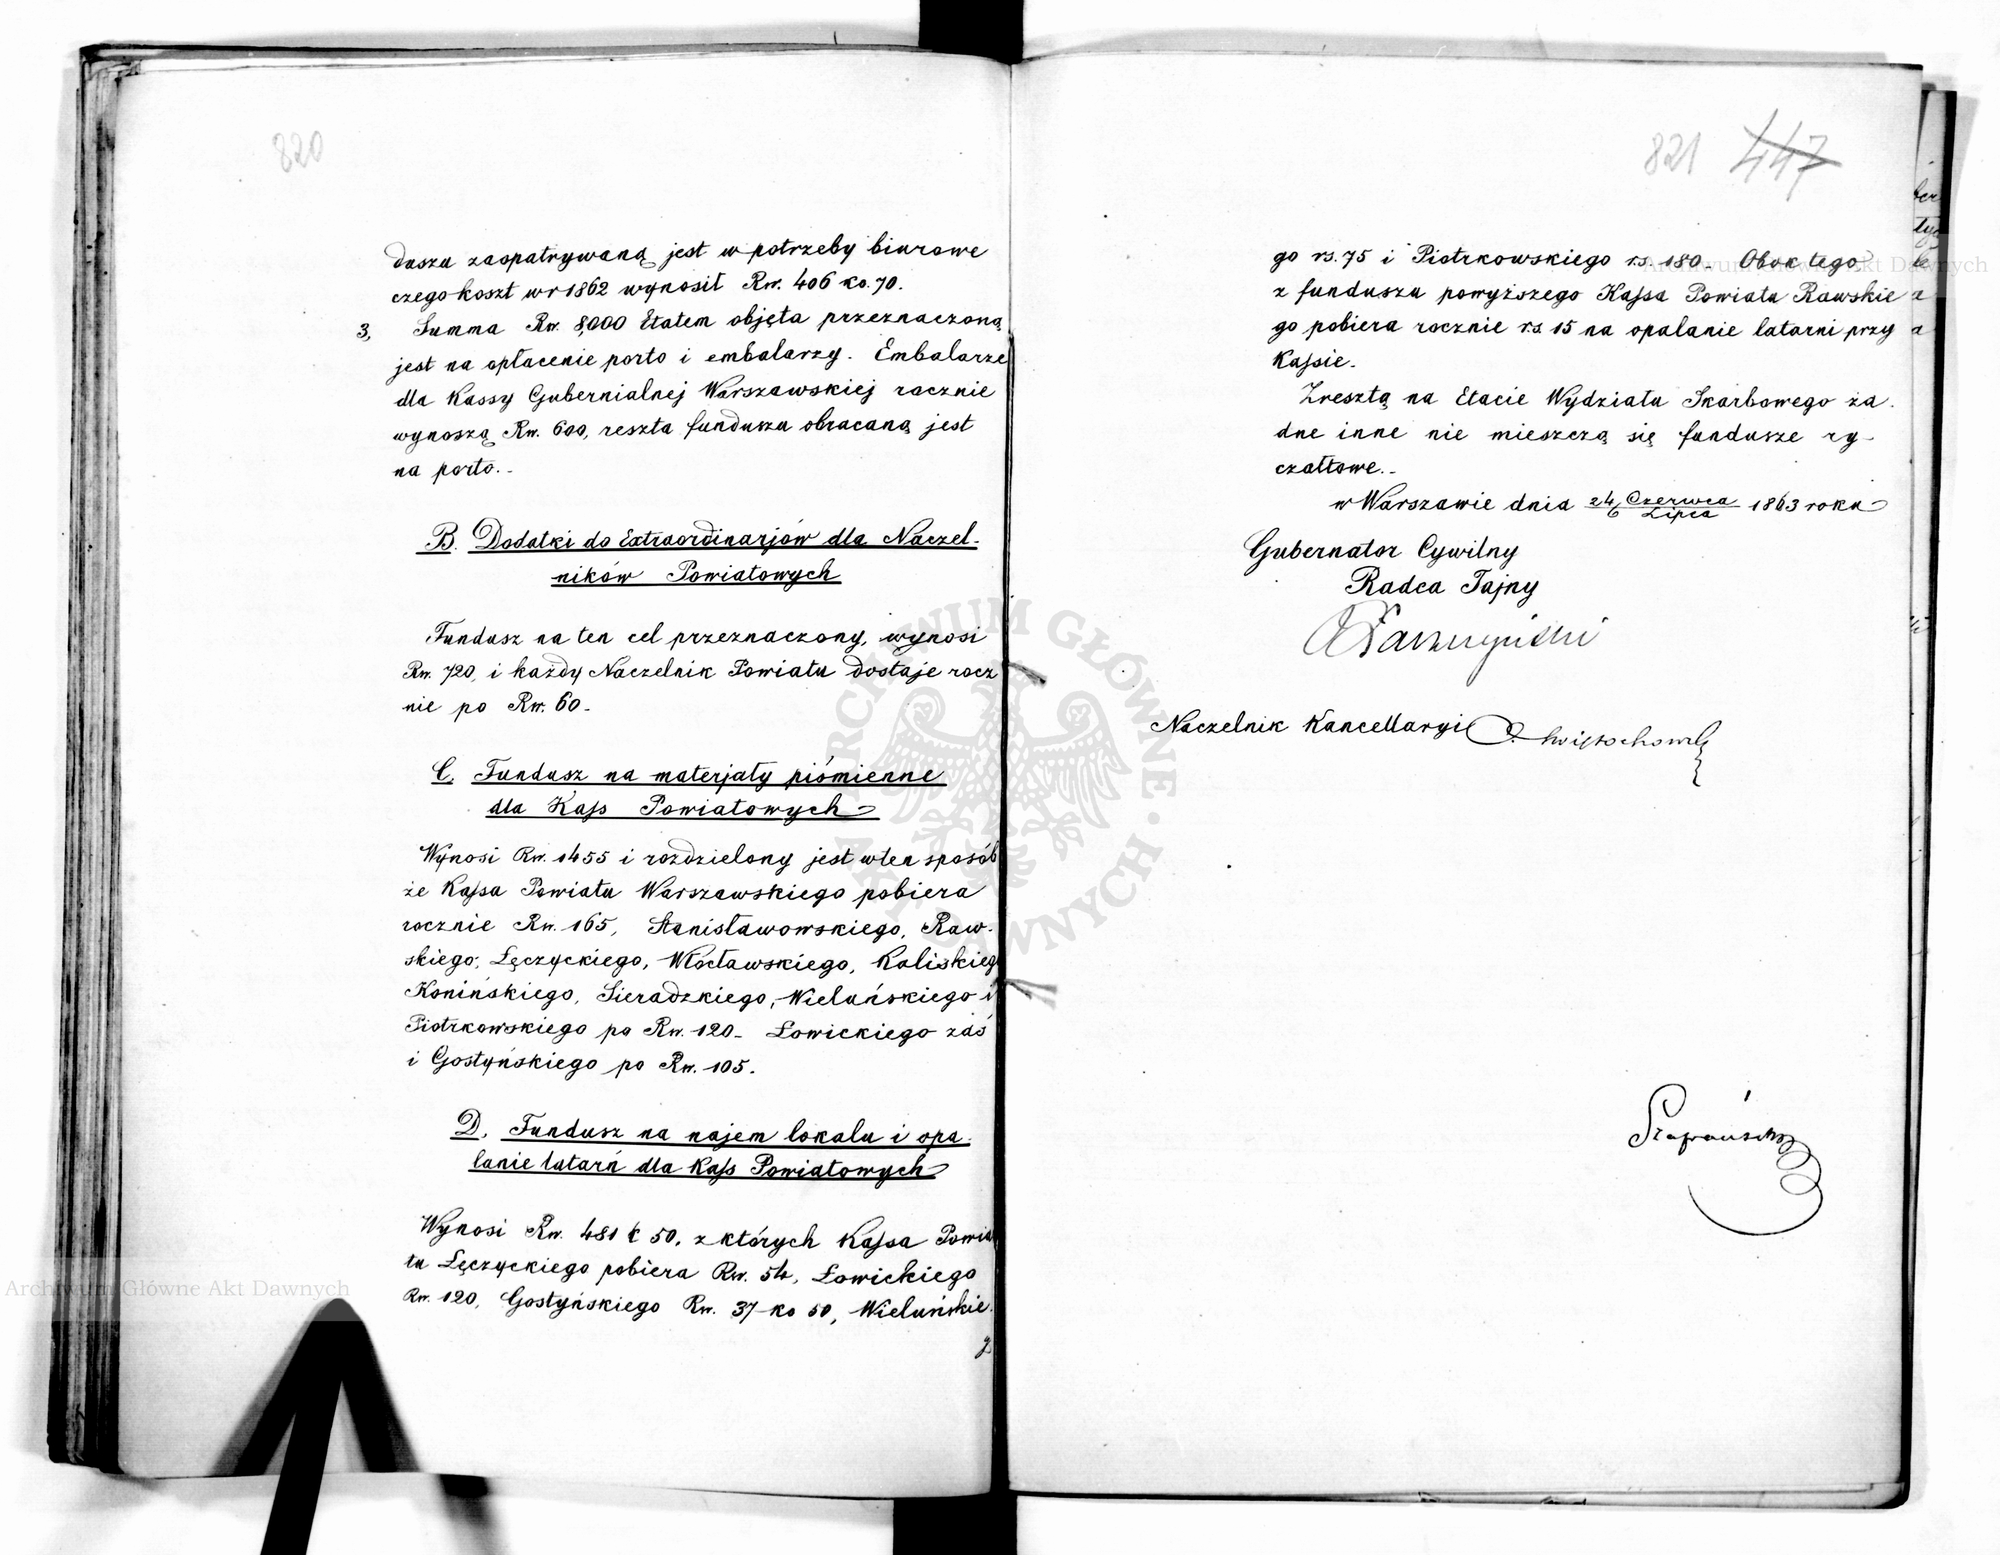 820
duszu zaopatrywaną jest w potrzeby biurowe
czego koszt w r 1862 wynosił Rsr. 406 ko. 70.
3, Summa Rsr. 8,000 Etatem objęta przeznaczoną
jest na opłacenie porto i embalarzy. Embalarze
dla Kassy Gubernialnej Warszawskiej rocznie
wynoszą Rsr. 600, reszta funduszu obracaną jest
na porto.-
B. Dodatki do Extraordinarjów dla Naczel-
ników Powiatowych
Fundusz na ten cel przeznaczony, wynosi
Rsr. 720, i każdy Naczelnik Powiatu dostaje rocz
nie po Rsr. 60.
C. Fundusz na materjały piśmienne
dla Kass Powiatowych
Wynosi Rsr. 1455 i rozdzielony jest w ten sposób
że Kassa Powiatu Warszawskiego pobiera
rocznie Rsr. 165, Stanisławowskiego, Raw-
skiego, Łęczyckiego, Włocławskiego, Kaliskiego
Konińskiego, Sieradzkiego, Wieluńskiego i
Piotrkowskiego po Rsr. 120 - Łowickiego zaś
i Gostyńskiego po Rsr. 105.
D. Fundusz na najem lokalu i opa-
lanie latarń dla Kass Powiatowych
Wynosi Rsr. 481 k 50, z których Kassa Powia
tu Łęczyckiego pobiera Rsr. 54, Łowickiego
Rsr. 120, Gostyńskiego Rsr. 37 ko 50, Wieluńskie-
821 447
go rs. 75 i Piotrkowskiego rs. 180. Obok tego
z funduszu powyższego Kassa Powiatu Rawskie
go pobiera rocznie rs 15 na opalanie latarni przy
Kassie.
Zresztą na Etacie Wydziału Skarbowego ża-
dne inne nie mieszczą się fundusze ry-
czałtowe.-
w Warszawie dnia 24/6 Czerwca/Lipca 1863 roku
Gubernator Cywilny
Radca Tajny
Naczelnik Kancellaryi
Archiwum Główne Akt Dawnych
Archiwum Główne Akt Dawnych
ARCHIWUM GŁÓWNE AKT DAWNYCH